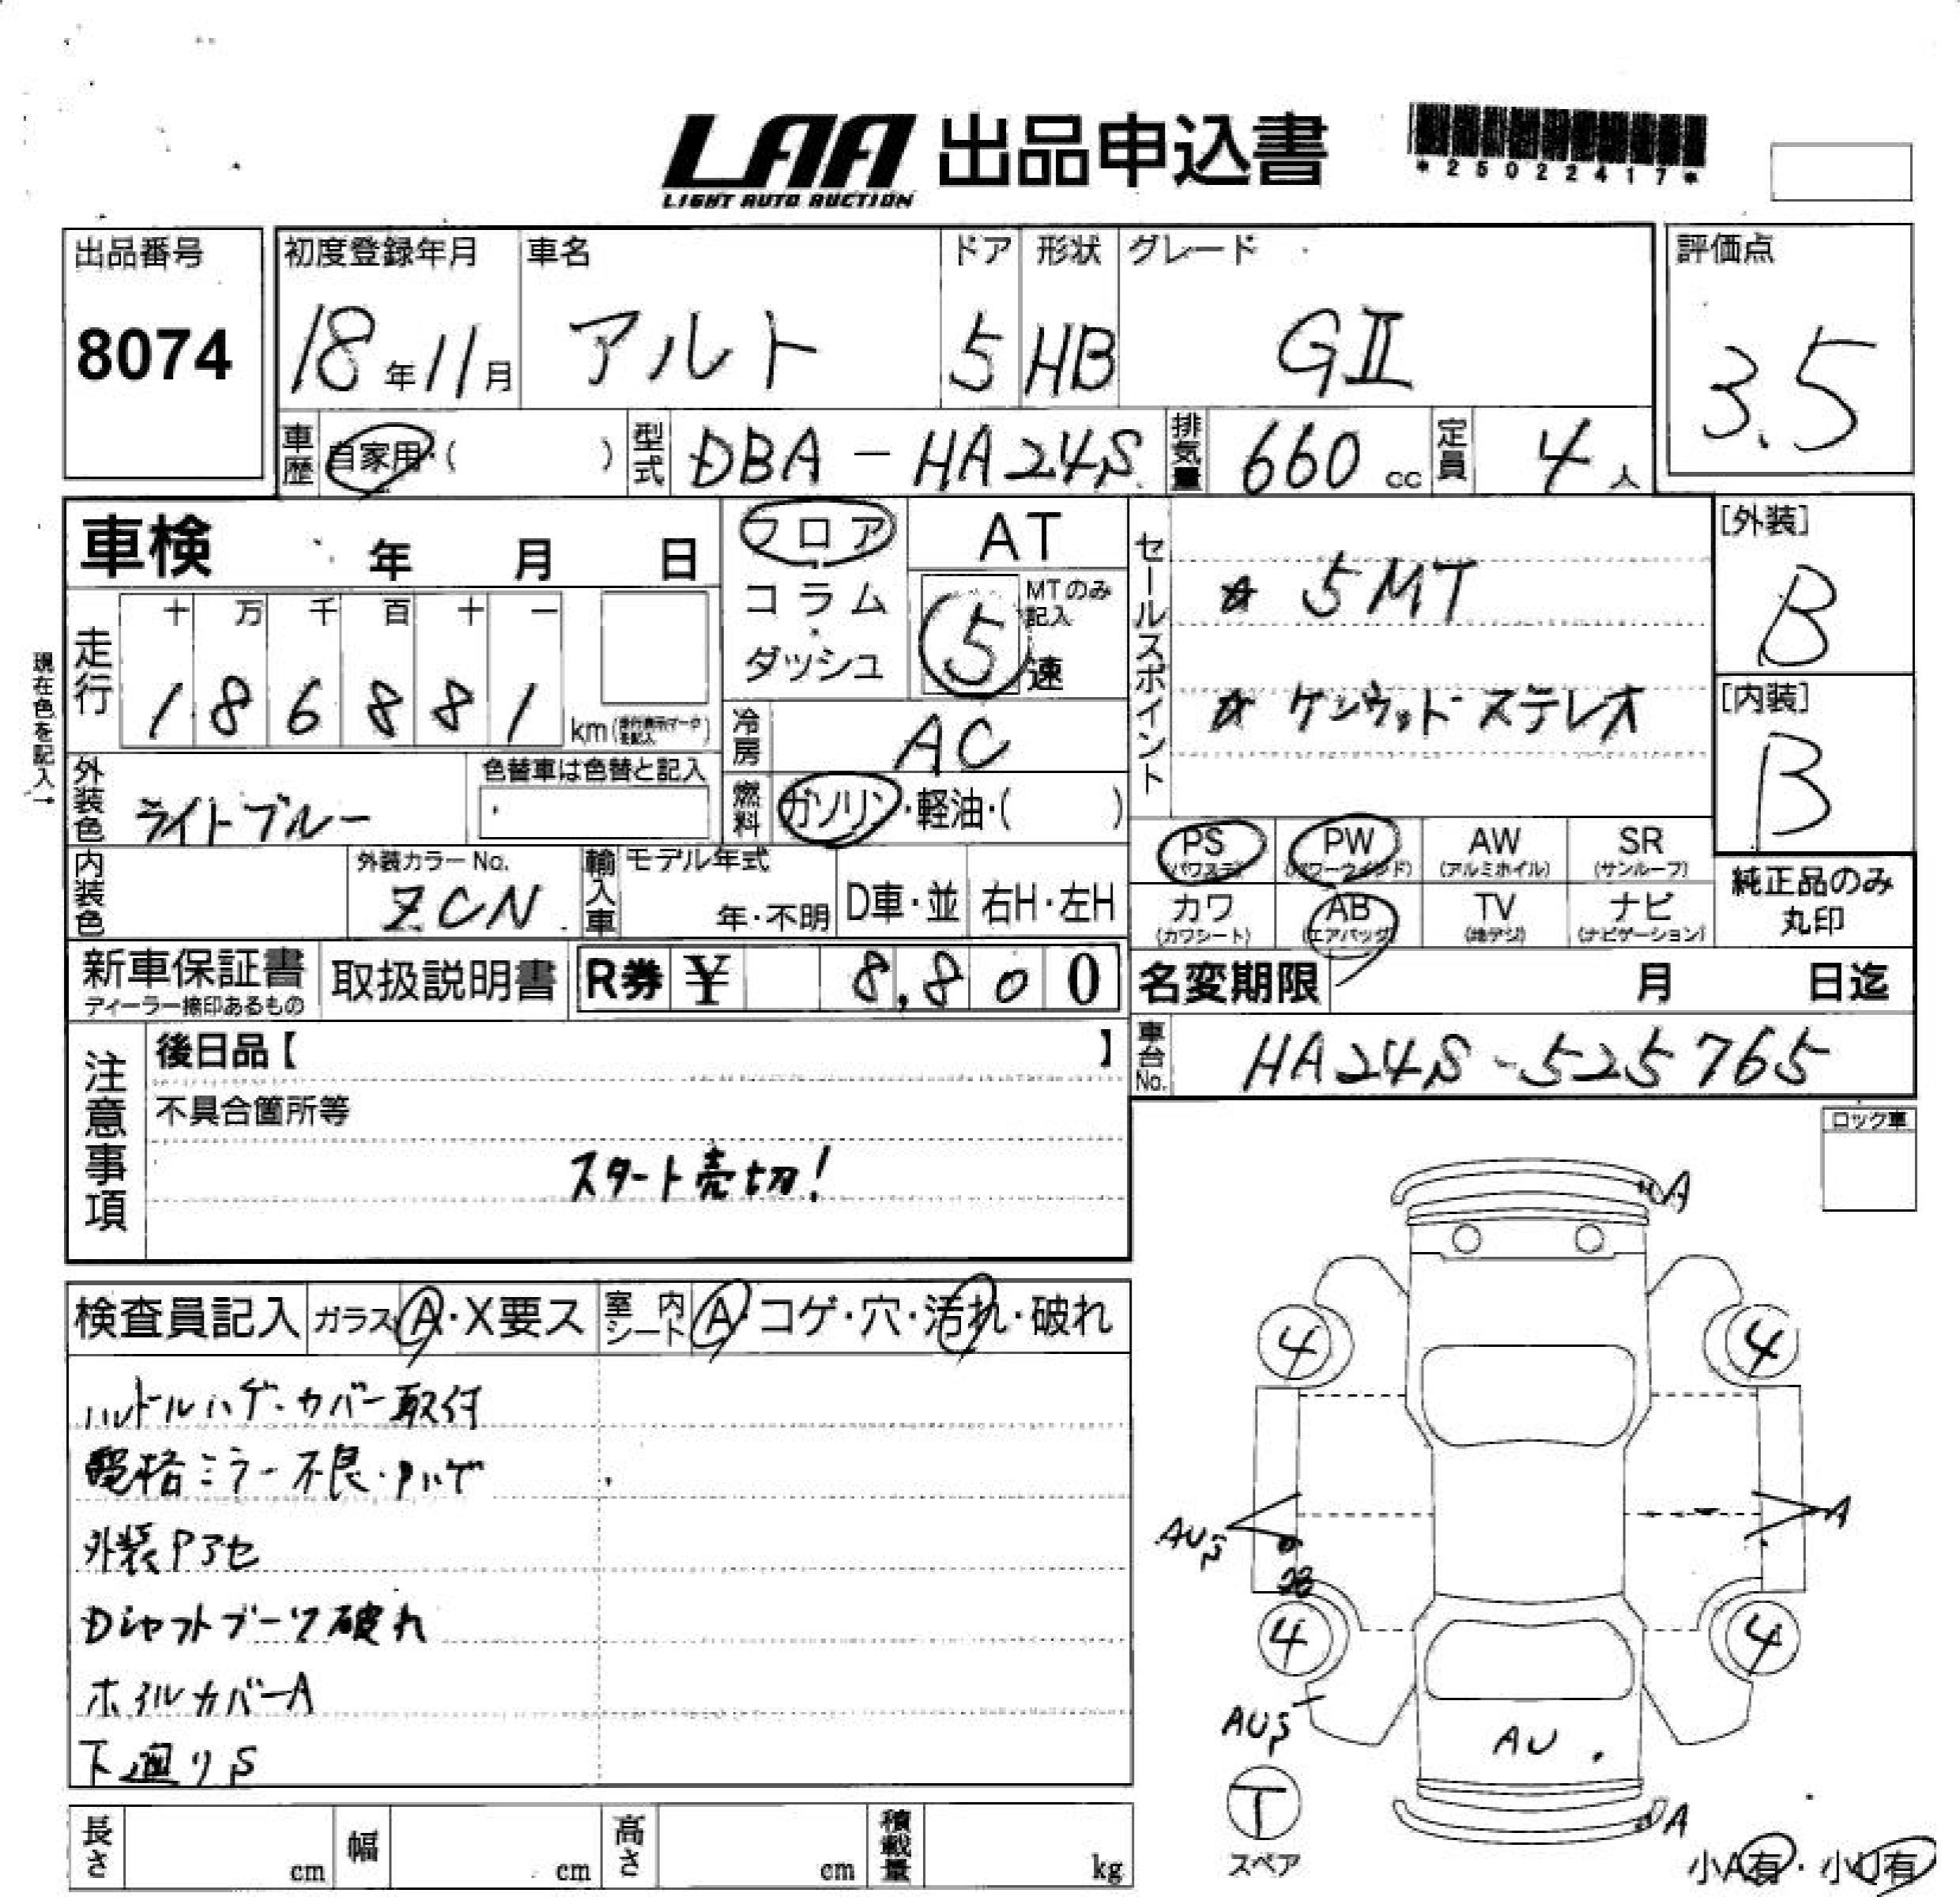 LAA 出品申込書
LIGHT AUTO AUCTION
*25022417*
出品番号 初度登録年月 車名 ドア 形状 グレード 評価点
8074 18年11月 アルト 5 HB GⅡ 3.5
車歴 自家用・( ) 型式 DBA-HA24S 排気量 660cc 定員 4人
車検 年 月 日 フロア AT セールスポイント [外装]
コラム MTのみ記入 ☆ 5MT B
十 万 千 百 十 一
走行 1 8 6 8 8 1 km ダッシュ 5速 ☆ ケンウッドステレオ [内装]
B
現在色を記入→
冷房 AC
外装色 ライトブルー 色替車は色替と記入 燃料 ガソリン・軽油・( )
PS (パワステ) PW (パワーウインド) AW (アルミホイル) SR (サンルーフ)
純正品のみ丸印
内装色 外装カラーNo. ZCN 輸入車 モデル年式 年・不明 D車・並 右H・左H
カワ (カワシート) AB (エアバッグ) TV (地デジ) ナビ (ナビゲーション)
新車保証書 ディーラー捺印あるもの 取扱説明書 R券 ¥ 8,800 名変期限 月 日迄
車台No. HA24S-525765
注意事項 後日品【 】
不具合箇所等
スタート売切!
ロック車
検査員記入 ガラス A・X要ス 室内シート A・コゲ・穴・汚れ・破れ
ハンドルハゲ・カバー取付
電格ミラー不良・Pハゲ
外装Pアセ
Dシャフトブーツ破れ
ホイルカバーA
下廻りS
A
4 4
A
4 4
AU
A
T
スペア
小A有・小U有
長さ cm 幅 cm 高さ cm 積載量 kg